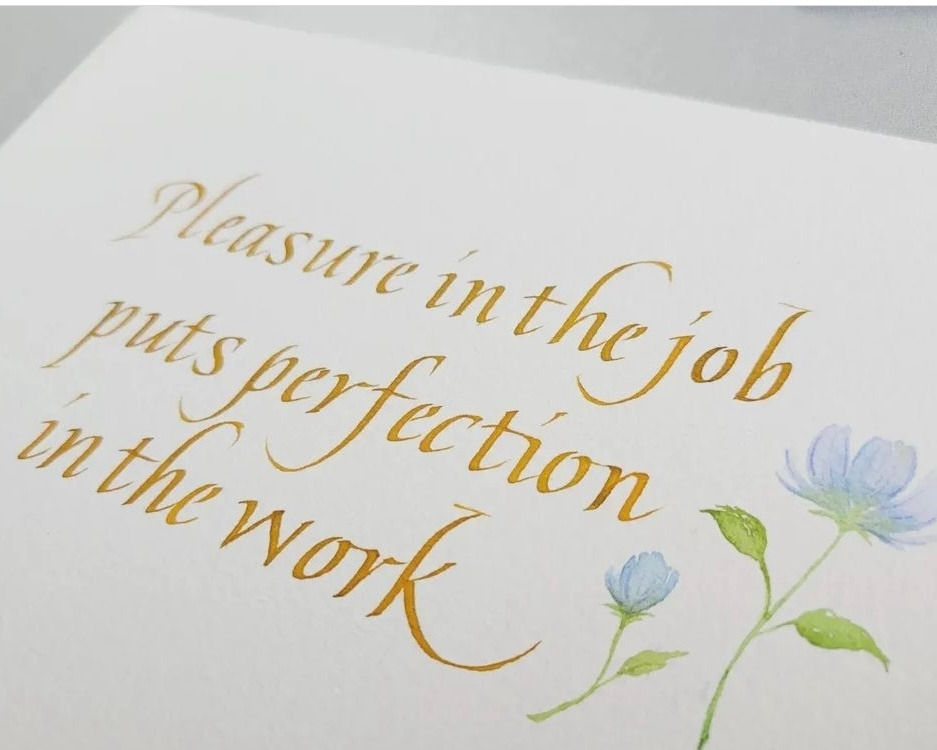 Pleasure in the job
puts perfection
in the work